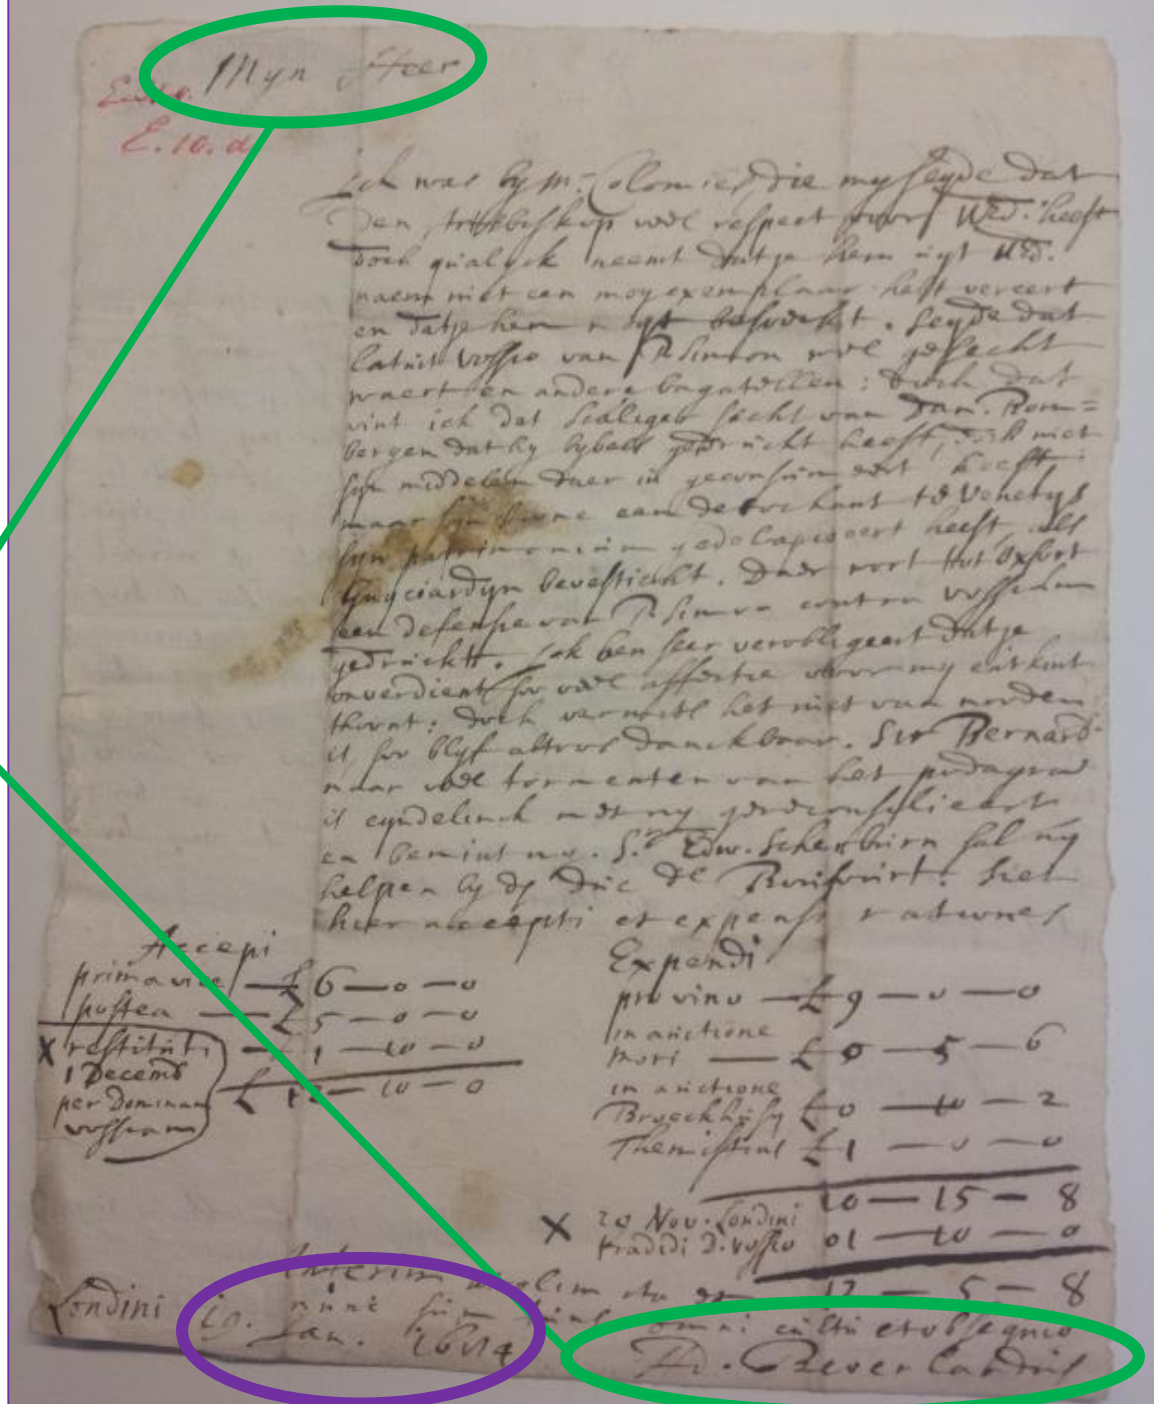 Myn Heer
E. 10. d
Ick was by Mr. Colomies, die my seyde dat
den veel respect voor UEd. heeft
doch qualyck neemt datje hem uyt UEd.
naem niet een moy exemplaar heft vereert
en datje hem niet besoeckt. Seyde dat
Vossio van R. Simon
en andere bagatellen: doch dat
vint ick dat Scaliger secht van Dan. Bom=
bergen dat hy bybels gedruckt heeft, niet
syn middelen daer in geconsumeert heeft
maar syn aan de te Venetys
syn patrimonium heeft, als
Guyciardyn bevestickt. Daer wort tot Oxfort
een defensie van R. Simon contra Vossium
gedruckt. Ick ben seer verobligeert datje
onverdient soo veel affectie voor my
thoont: doch het niet van
is, soo blyf altoos danckbaar. Sir Bernard
naar veel tormenten van het podagra
is eyndelinck met my gereconsilieert
en bemint my. Sr. Edw. Scherburn sal my
helpen by de duc de . Siet
hier accepti et expensi rationes
Accepi
prima vice — £ 6 — 0 — 0
postea — £ 5 — 0 — 0
X restituti — £ 1 — 10 — 0
1 Decemb
per Dominam
Vossiam
£ 12 — 10 — 0
Expendi
pro vino — £ 9 — 0 — 0
in auctione
Mori — £ 0 — 5 — 6
in auctione
Broeckhusy £ 0 — 10 — 2
Themistius £ 1 — 0 — 0
10 — 15 — 8
X 20 Nov. Londini
tradidi D. Vossio 01 — 10 — 0
12 — 5 — 8
Interim ut olim ita
nunc sum omni cultu et obsequio
Londini 10. Jan. 1684
H. Beverlandus